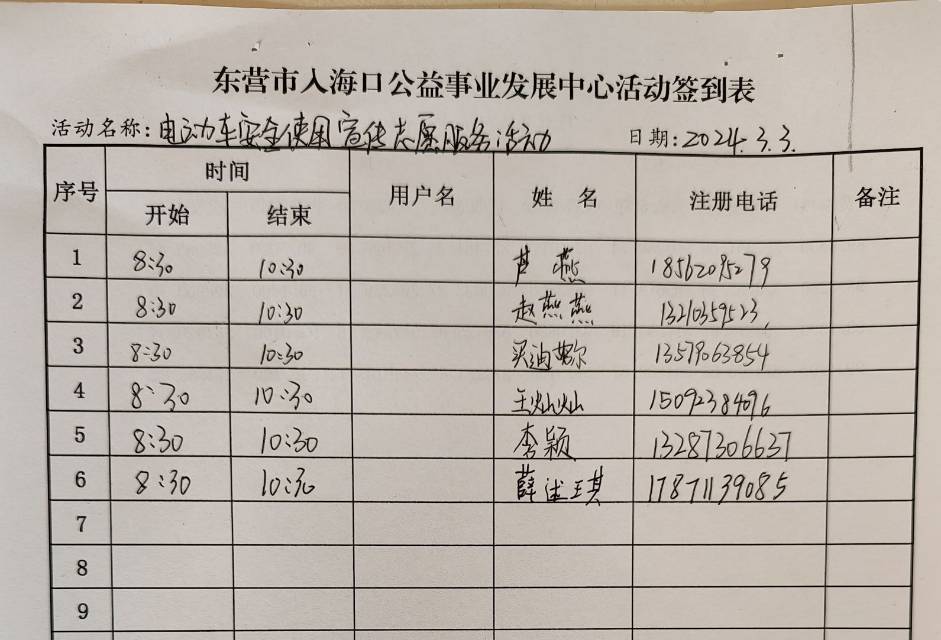 东营市入海口公益事业发展中心活动签到表
活动名称:电动车安全使用宣传志愿服务活动 日期:2024.3.3.
序号 时间 用户名 姓 名 注册电话 备注
开始 结束
1 8:30 10:30 芦燕 18562095279
2 8:30 10:30 赵燕燕 13210359523
3 8:30 10:30 买迪努尔 13579063854
4 8:30 10:30 王灿灿 15092384096
5 8:30 10:30 李颖 13287306637
6 8:30 10:30 薛述琪 17871139085
7
8
9